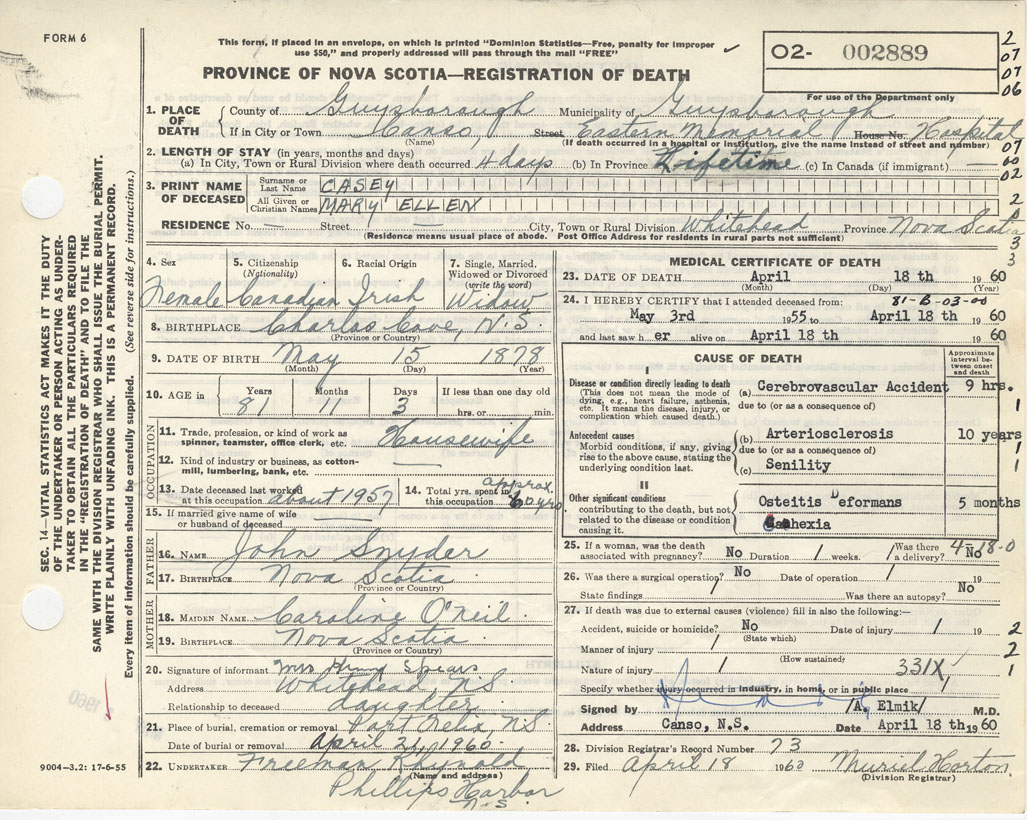 FORM 6
This form, if placed in an envelope, on which is printed "Dominion Statistics—Free, penalty for improper
use $50," and properly addressed will pass through the mail "FREE"
O2- 002889
2
07
07
06
For use of the Department only
PROVINCE OF NOVA SCOTIA—REGISTRATION OF DEATH
1. PLACE OF DEATH
County of Guysborough Municipality of Guysborough
If in City or Town Canso Street Eastern Memorial House No. Hospital
(Name) (If death occurred in a hospital or institution, give the name instead of street and number)
07
2. LENGTH OF STAY (in years, months and days)
(a) In City, Town or Rural Division where death occurred 4 days (b) In Province Lifetime (c) In Canada (if immigrant)
60
02
3. PRINT NAME OF DECEASED
Surname or Last Name CASEY
All Given or Christian Names MARY ELLEN
2
3
RESIDENCE No. — Street — City, Town or Rural Division Whitehead Province Nova Scotia
(Residence means usual place of abode. Post Office Address for residents in rural parts not sufficient)
3
SEC. 14—VITAL STATISTICS ACT MAKES IT THE DUTY
OF THE UNDERTAKER OR PERSON ACTING AS UNDER-
TAKER TO OBTAIN ALL THE PARTICULARS REQUIRED
IN THE "REGISTRATION OF DEATH" AND TO FILE THE
SAME WITH THE DIVISION REGISTRAR WHO SHALL ISSUE THE BURIAL PERMIT.
WRITE PLAINLY WITH UNFADING INK. THIS IS A PERMANENT RECORD.
Every item of information should be carefully supplied. (See reverse side for instructions.)
4. Sex 5. Citizenship (Nationality) 6. Racial Origin 7. Single, Married, Widowed or Divorced (write the word)
Female Canadian Irish Widow
8. BIRTHPLACE Charlos Cove, N.S.
(Province or Country)
9. DATE OF BIRTH May 15 1878
(Month) (Day) (Year)
10. AGE in Years Months Days If less than one day
81 11 3 hrs. or min.
OCCUPATION
11. Trade, profession, or kind of work as
spinner, teamster, office clerk, etc. Housewife
12. Kind of industry or business, as cotton-
mill, lumbering, bank, etc. —
13. Date deceased last worked
at this occupation about 1957
14. Total yrs. spent in
this occupation approx. 60 yrs
15. If married give name of wife
or husband of deceased —
FATHER
16. NAME John Snyder
17. BIRTHPLACE Nova Scotia
(Province or Country)
MOTHER
18. MAIDEN NAME Caroline O'Neil
19. BIRTHPLACE Nova Scotia
(Province or Country)
20. Signature of informant Mrs
Address Whitehead, N.S.
Relationship to deceased daughter
21. Place of burial, cremation or removal Port Felix, N.S
Date of burial or removal April 21, 1960
22. UNDERTAKER Freeman
(Name and address)
Phillips Harbor
N.S.
9004-3.2: 17-6-55
1960
MEDICAL CERTIFICATE OF DEATH
23. DATE OF DEATH April 18 th 1960
(Month) (Day) (Year)
24. I HEREBY CERTIFY that I attended deceased from: 81-B-03-00
May 3rd 1955 to April 18 th 1960
and last saw her alive on April 18 th 1960
CAUSE OF DEATH
Approximate interval between onset and death
I
Disease or condition directly leading to death
(This does not mean the mode of
dying, e.g., heart failure, asthenia,
etc. It means the disease, injury, or
complication which caused death.)
(a) Cerebrovascular Accident 9 hrs.
due to (or as a consequence of)
1
Antecedent causes
Morbid conditions, if any, giving
rise to the above cause, stating the
underlying condition last.
(b) Arteriosclerosis 10 years
due to (or as a consequence of)
1
(c) Senility
1
II
Other significant conditions
contributing to the death, but not
related to the disease or condition
causing it.
Osteitis Deformans 5 months
Cachexia
25. If a woman, was the death
associated with pregnancy? No Duration / weeks. Was there
a delivery? No
4-18-0
26. Was there a surgical operation? No Date of operation / 19
State findings / Was there an autopsy? No
27. If death was due to external causes (violence) fill in also the following:—
Accident, suicide or homicide? No Date of injury / 19
(State which)
2
Manner of injury /
(How sustained)
2
Nature of injury / 331X
1
Specify whether injury occurred in industry, in home, or in public place /
Signed by /A. Elmik/ M.D.
Address Canso, N.S. Date April 18 th 1960
28. Division Registrar's Record Number 73
29. Filed April 18 1960 Muriel Horton
(Division Registrar)